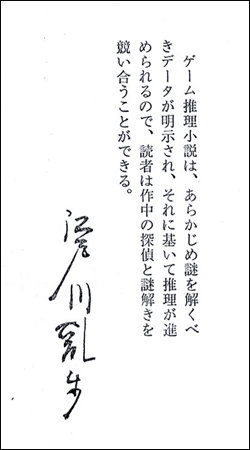 ゲーム推理小説は、あらかじめ謎を解くべ
きデータが明示され、それに基いて推理が進
められるので、読者は作中の探偵と謎解きを
競い合うことができる。
江戸川乱歩